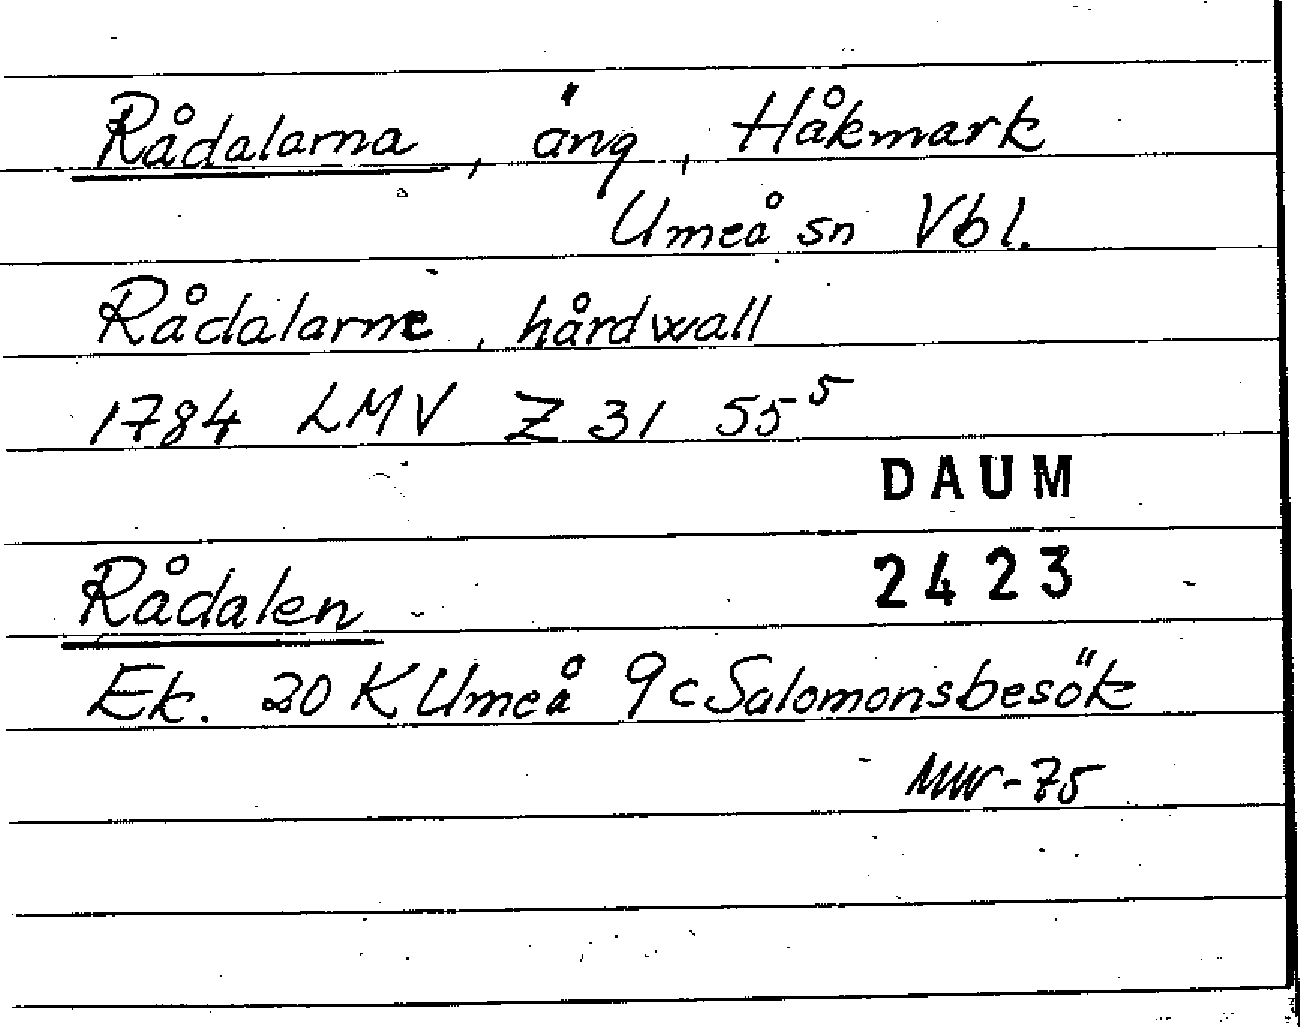 Rådalarna, äng, Håkmark
Umeå sn Vbl.
Rådalarne, hårdwall
1784 LMV Z 31 55⁵
DAUM
2423
Rådalen
Ek. 20 K Umeå 9c Salomonsbesök
MW-75